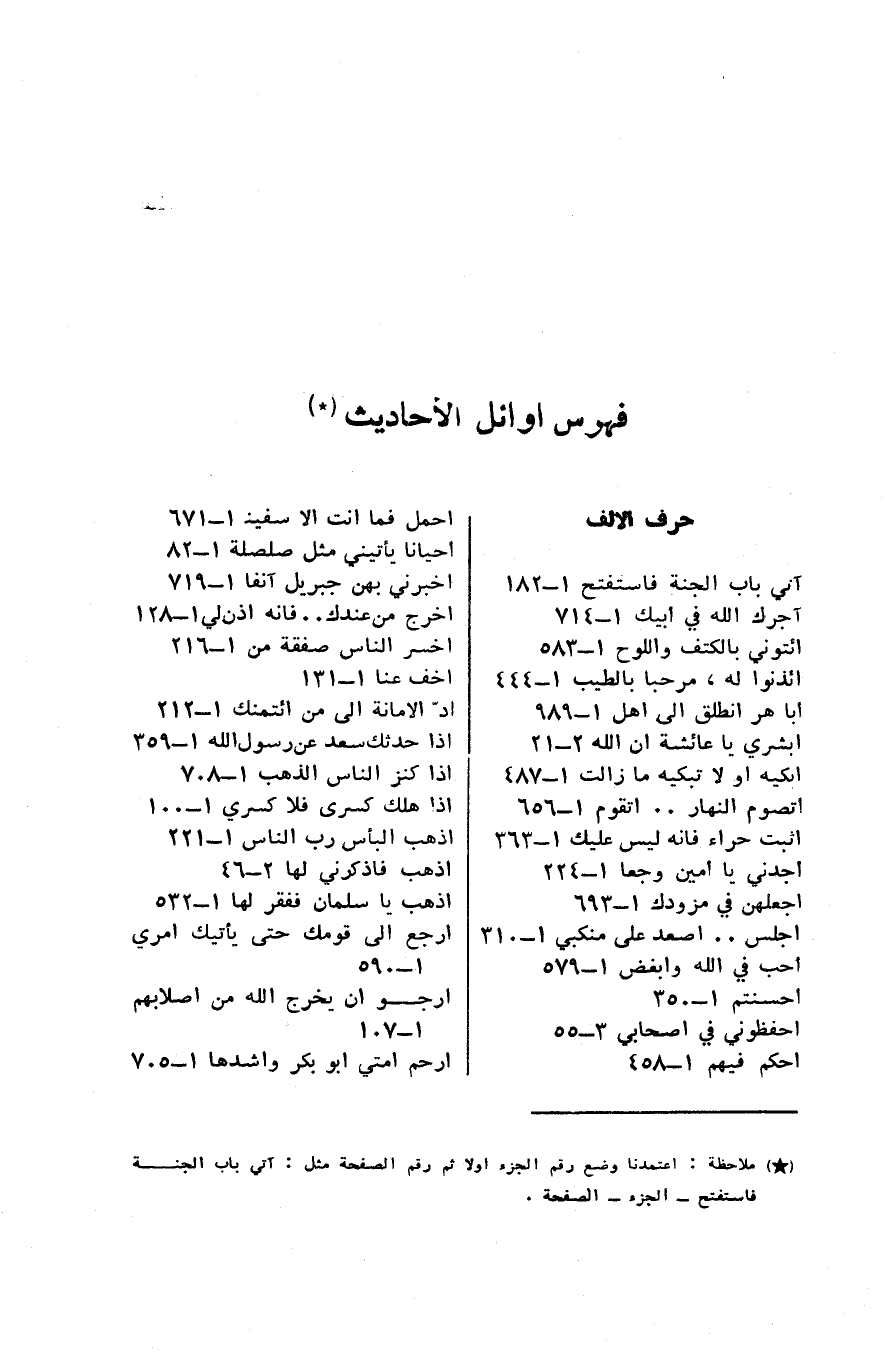 فهرس اوائل الأحاديث (*)
حرف الالف
آتي باب الجنة فاستفتح ١–١٨٢
آجرك الله في أبيك ١–٧١٤
ائتوني بالكتف واللوح ١–٥٨٣
ائذنوا له ، مرحبا بالطيب ١–٤٤٤
أبا هر انطلق الى اهل ١–٩٨٩
ابشري يا عائشة ان الله ٢–٢١
ابكيه او لا تبكيه ما زالت ١–٤٨٧
اتصوم النهار .. اتقوم ١–٦٥٦
اثبت حراء فانه ليس عليك ١–٣٦٣
أجدني يا أمين وجعا ١–٢٢٤
اجعلهن في مزودك ١–٦٩٣
اجلس .. اصعد على منكبي ١–٣١٠
أحب في الله وابغض ١–٥٧٩
احسنتم ١–٣٥٠
احفظوني في اصحابي ٣–٥٥
احكم فيهم ١–٤٥٨
احمل فما انت الا سفينة ١–٦٧١
احيانا يأتيني مثل صلصلة ١–٨٢
اخبرني بهن جبريل آنفا ١–٧١٩
اخرج من عندك.. فانه اذن لي ١–١٢٨
اخسر الناس صفقة من ١–٢١٦
اخف عنا ١–١٣١
ادّ الامانة الى من ائتمنك ١–٢١٢
اذا حدثك سعد عن رسول الله ١–٣٥٩
اذا كنز الناس الذهب ١–٧٠٨
اذا هلك كسرى فلا كسري ١–١٠٠
اذهب البأس رب الناس ١–٢٢١
اذهب فاذكرني لها ٢–٤٦
اذهب يا سلمان ففقر لها ١–٥٣٢
ارجع الى قومك حتى يأتيك امري
١–٥٩٠
ارجـــو ان يخرج الله من اصلابهم
١–١٠٧
ارحم امتي ابو بكر واشدها ١–٧٠٥
(★) ملاحظة : اعتمدنا وضع رقم الجزء اولا ثم رقم الصفحة مثل : آتي باب الجنـــــة
فاستفتح – الجزء – الصفحة .